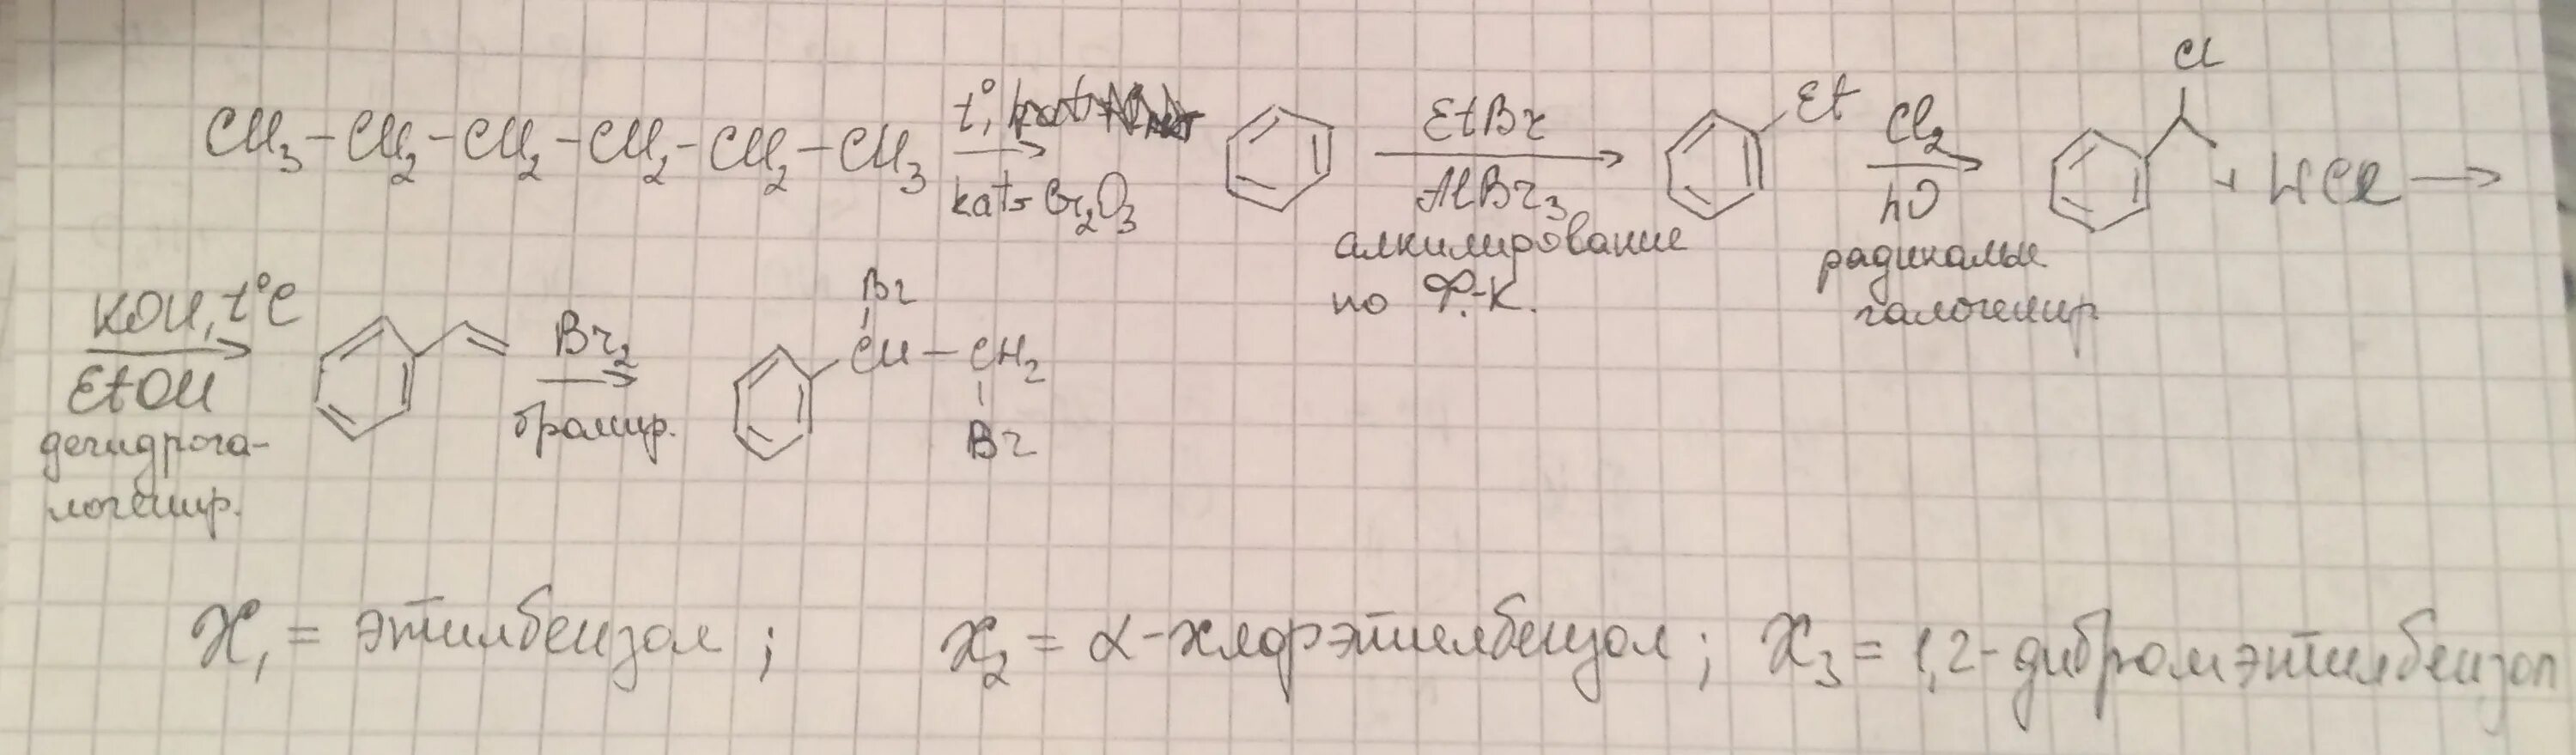 CH₃-CH₂-CH₂-CH₂-CH₂-CH₃ t°, kat = Cr₂O₃ → EtBr AlBr₃ → Et Cl₂ hν → Cl + HCl →
алкилирование по Ф.-К.
радикальн. галогенир.
KOH, t°C EtOH → Br₂ → Br CH-CH₂ Br
дегидрога-
логенир.
бромир.
X₁ = этилбензол ; X₂ = α-хлорэтилбензол ; X₃ = 1,2-дибромэтилбензол